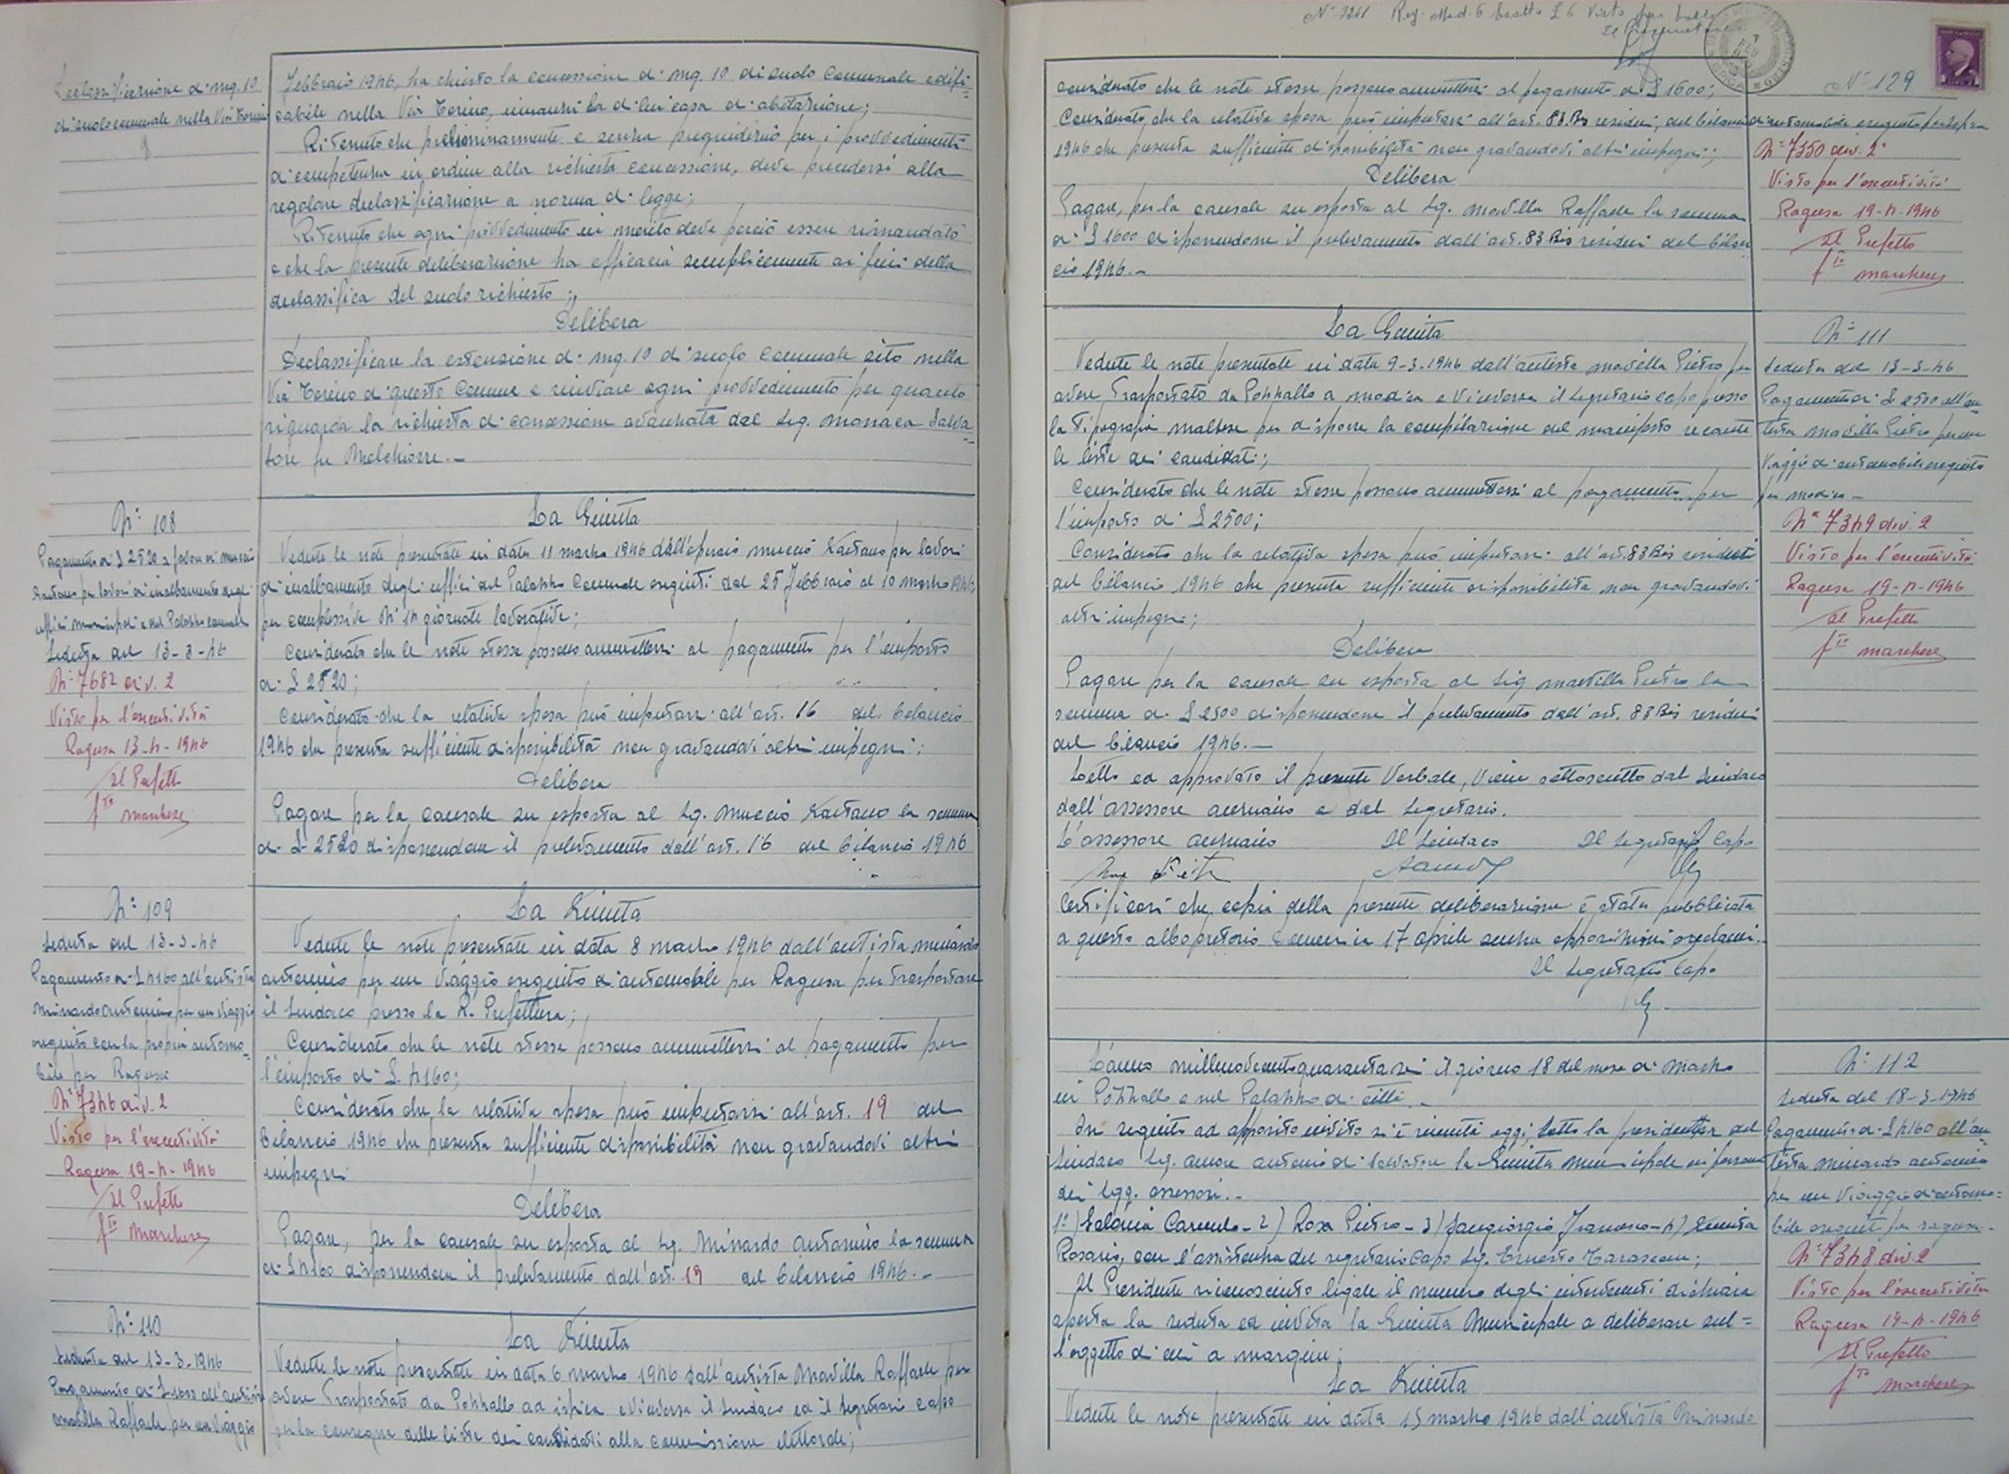 Declassificazione di mq. 10
di suolo comunale nella Via Torino
Febbraio 1946, ha chiesto la concessione di mq. 10 di suolo comunale edifi=
cabile nella Via Torino, innanzi la di lui casa di abitazione;
Ritenuto che preliminarmente e senza pregiudizio per i provvedimenti
di competenza in ordine alla richiesta concessione, deve procedersi alla
regolare declassificazione a norma di legge;
Ritenuto che ogni provvedimento in merito deve perciò essere rimandato
e che la presente deliberazione ha efficacia semplicemente ai fini della
declassifica del suolo richiesto;
Delibera
Declassificare la estensione di mq. 10 di suolo comunale sito nella
Via Torino di questo Comune e rinviare ogni provvedimento per quanto
riguarda la richiesta di concessione avanzata dal Sig. Monaca Salva=
tore fu Melchiorre.-
N: 108
Pagamento di £ 2520 a favore di Muccio
Gaetano per lavori di inalbamento degli
uffici municipali e del Palazzo comunale
Seduta del 13-3-46
N: 7682 div. 2
Visto per l'esecutività
Ragusa 13-4-1946
Il Prefetto
fto Marchese
La Giunta
Vedute le note presentate in data 11 marzo 1946 dall'operaio Muccio Gaetano per lavori
di inalbamento degli uffici del Palazzo Comunale eseguiti dal 25 Febbraio al 10 marzo 1946,
per complessive N: 14 giornate lavorative;
Considerato che le note stesse possono ammettersi al pagamento per l'importo
di £ 2520;
Considerato che la relativa spesa può imputarsi all'art. 16 del bilancio
1946 che presenta sufficiente disponibilità non gravandovi altri impegni;
Delibera
Pagare per la causale su esposta al Sig. Muccio Gaetano la somma
di £ 2520 disponendone il prelevamento dall'art. 16 del bilancio 1946
N: 109
Seduta del 13-3-46
Pagamento di £ 4160 all'autista
Minardo Antonino per un viaggio
eseguito con la propria automo=
bile per Ragusa
N: 7346 div. 2
Visto per l'esecutività
Ragusa 19-4-1946
Il Prefetto
fto Marchese
La Giunta
Vedute le note presentate in data 8 marzo 1946 dall'autista Minardo
Antonino per un viaggio eseguito di automobile per Ragusa per trasportare
il Sindaco presso la R. Prefettura;
Considerato che le note stesse possono ammettersi al pagamento per
l'importo di £ 4160;
Considerato che la relativa spesa può imputarsi all'art. 19 del
bilancio 1946 che presenta sufficiente disponibilità non gravandovi altri
impegni
Delibera
Pagare, per la causale su esposta al Sig. Minardo Antonino la somma
di £ 4160 disponendone il prelevamento dall'art. 19 del bilancio 1946.-
N: 110
Seduta del 13-3-1946
Pagamento di £ 1600 all'autista
Movilla Raffaele per un viaggio
La Giunta
Vedute le note presentate in data 6 marzo 1946 dall'autista Movilla Raffaele per
avere trasportato da Pozzallo ad Ispica e viceversa il Sindaco ed il Segretario capo
per la consegna delle liste dei candidati alla commissione elettorale;
N. 3261 Reg. Mod. 6
N: 129
considerato che le note stesse possono ammettersi al pagamento di £ 1600;
Considerato, che la relativa spesa può imputarsi all'art. 83 Bis residui, del bilancio
1946 che presenta sufficiente disponibilità non gravandovi altri impegni;
Delibera
Pagare, per la causale su esposta al Sig. Movilla Raffaele la somma
di £ 1600 disponendone il prelevamento dall'art. 83 Bis residui del bilan=
cio 1946.-
di automobile eseguito per Ispica
N: 7350 div. 2
Visto per l'esecutività
Ragusa 19-4-1946
Il Prefetto
fto Marchese
La Giunta
Vedute le note presentate in data 9-3-1946 dall'autista Movilla Pietro per
avere trasportato da Pozzallo a Modica e Viceversa il Segretario capo presso
la tipografia Maltese per disporre la compilazione del manifesto recante
le liste dei candidati;
Considerato che le note stesse possono ammettersi al pagamento per
l'importo di £ 2500;
Considerato che la relativa spesa può imputarsi all'art. 83 Bis residui
del bilancio 1946 che presenta sufficiente disponibilità non gravandovi
altri impegni;
Delibera
Pagare per la causale su esposta al Sig Movilla Pietro la
somma di £ 2500 disponendone il prelevamento dall'art. 83 Bis residui
del bilancio 1946.-
Letto ed approvato il presente Verbale, viene sottoscritto dal Sindaco
dall'assessore anziano e dal Segretario.
L'assessore anziano Il Sindaco Il Segretario Capo
Certificasi che copia della presente deliberazione è stata pubblicata
a questo albo pretorio domenica 17 aprile senza opposizioni o reclami.-
Il Segretario Capo
N: 111
Seduta del 13-3-46
Pagamento di £ 2500 all'au=
tista Movilla Pietro per un
viaggio di automobile eseguito
per Modica -
N: 7349 div. 2
Visto per l'esecutività
Ragusa 19-4-1946
Il Prefetto
fto Marchese
L'anno millenovecentoquarantasei il giorno 18 del mese di Marzo
in Pozzallo e nel Palazzo di città.-
In seguito ad apposito invito si è riunita oggi, sotto la presidenza del
Sindaco Sig. Amore Antonio di Salvatore la Giunta Municipale in persona
dei Sigg. assessori.-
1:) Salonia Carmelo - 2) Rosa Pietro - 3) Sangiorgio Francesco - 4) Giunta
Rosario, con l'assistenza del segretario capo Sig. Ernesto Tarascone;
Il Presidente riconosciuto legale il numero degli intervenuti dichiara
aperta la seduta ed invita la Giunta Municipale a deliberare sul=
l'oggetto di cui a margine;
La Giunta
Vedute le note presentate in data 15 marzo 1946 dall'autista Minardo
N: 112
Seduta del 18-3-1946
Pagamento di £ 4160 all'au=
tista Minardo Antonino
per un viaggio di automo=
bile eseguito per Ragusa.
N: 7348 div. 2
Visto per l'esecutività
Ragusa 19-4-1946
Il Prefetto
fto Marchese